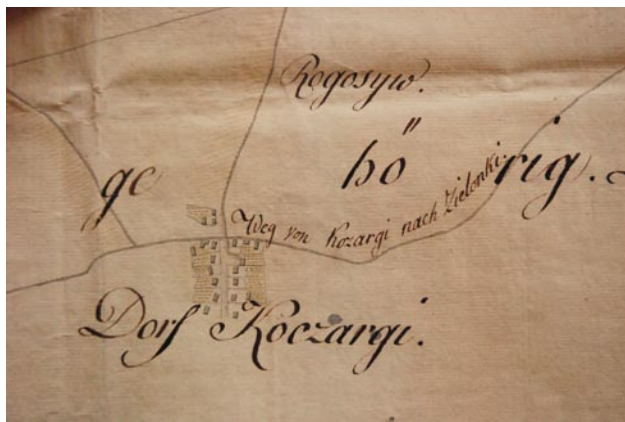 Rogosyw.
ge hö rig.
Weg von Kozargi nach Zielonki.
Dorf Koczargi.